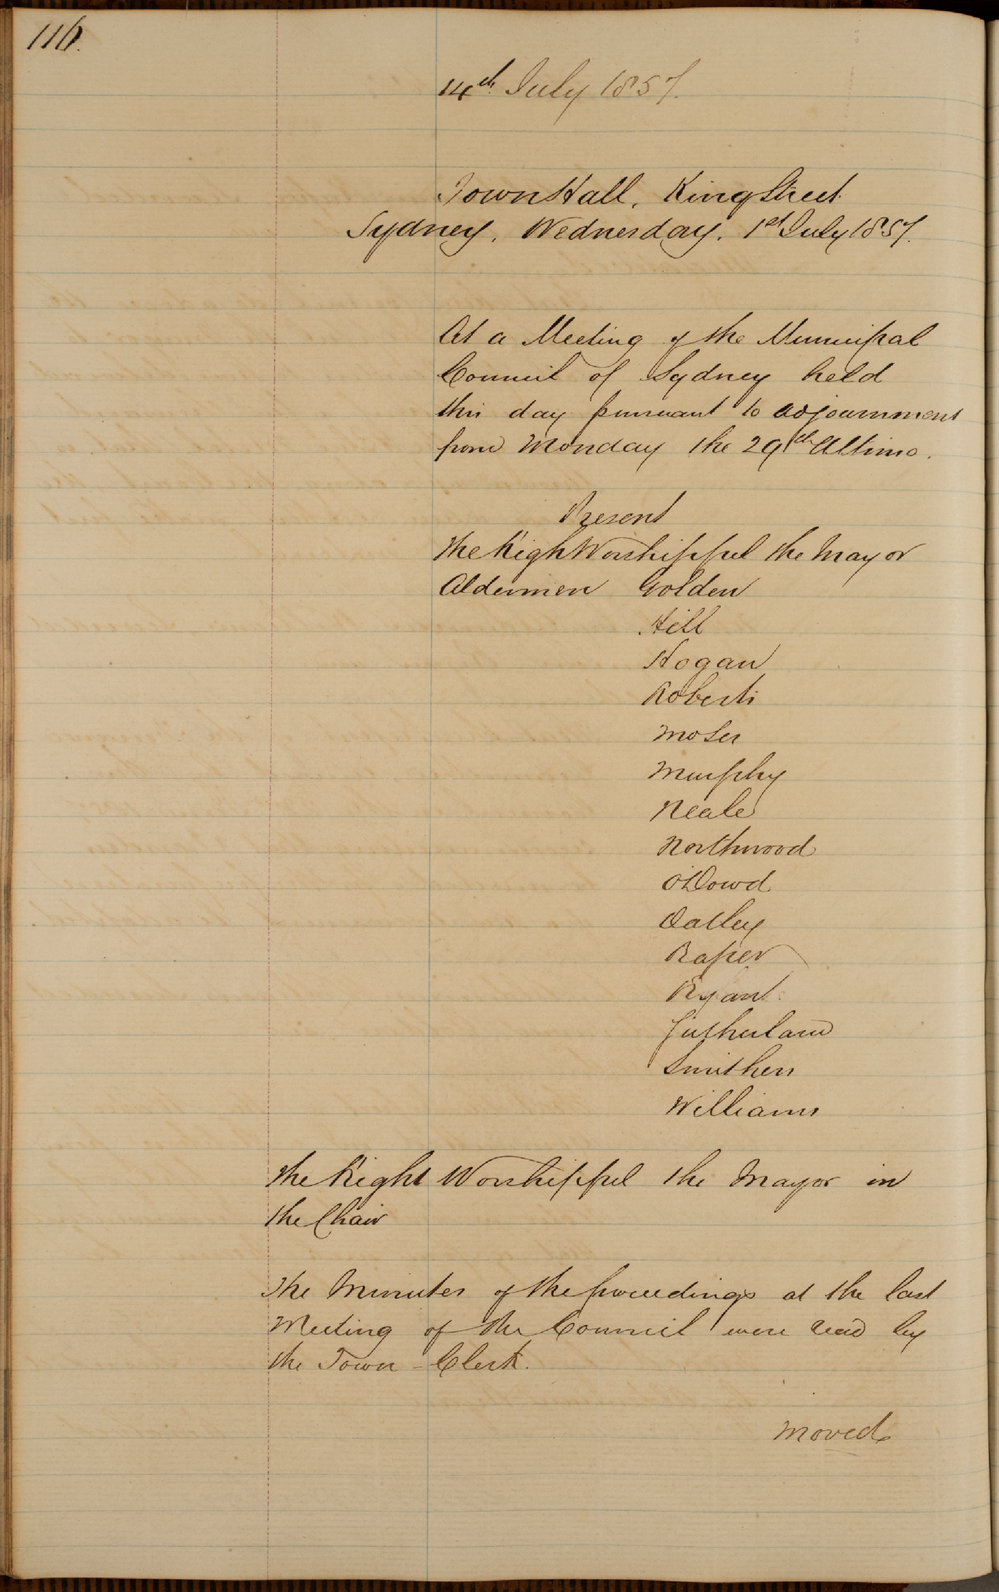 116.
14th July 1857.
Town Hall, King Street
Sydney, Wednesday, 1st July 1857.
At a Meeting of the Municipal
Council of Sydney held
this day pursuant to adjournment
from Monday the 29th Ultimo.
Present
The Right Worshipful the Mayor
Aldermen Golden
Hill
Hogan
Roberts
Moses
Murphy
Neale
Northwood
O'Dowd
Oatley
Raper
Ryan
Sutherland
Smithers
Williams
The Right Worshipful the Mayor in
the Chair
The Minutes of the proceedings at the last
Meeting of the Council were read by
the Town-Clerk.
Moved